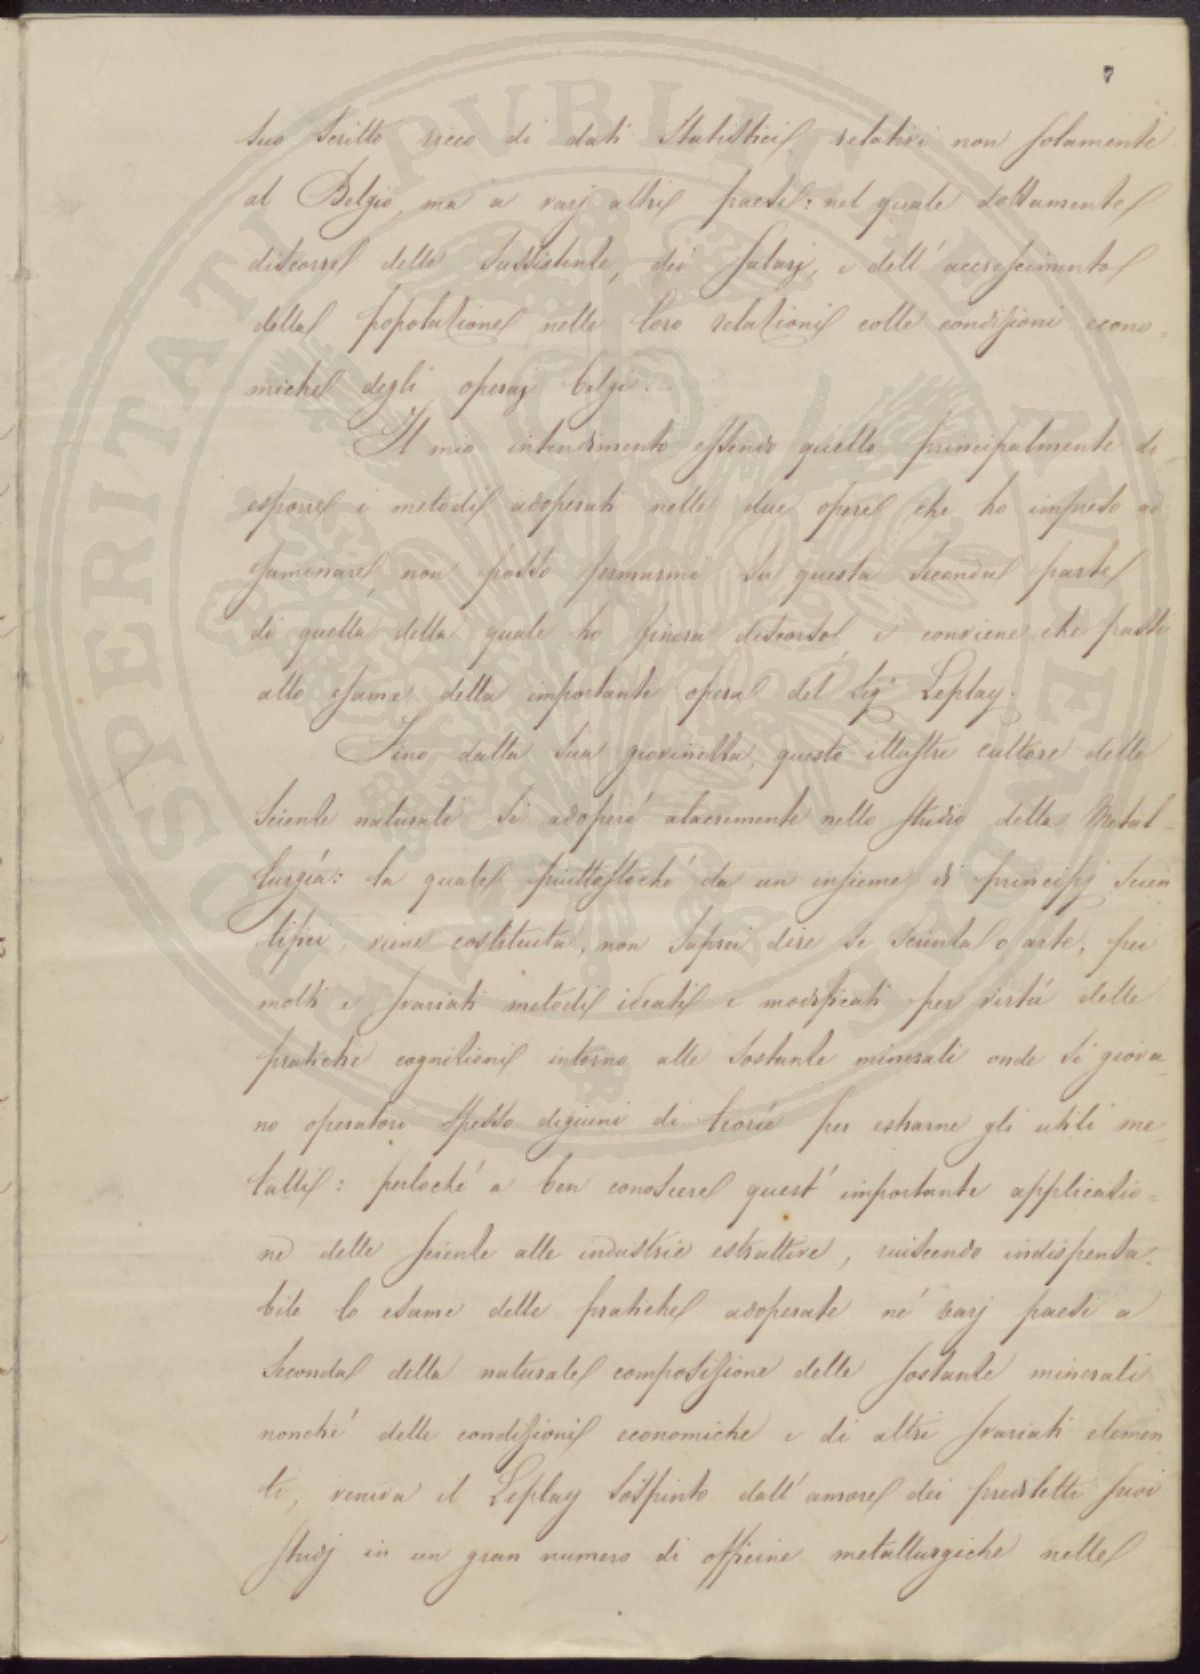 7
suo scritto ricco di dati statistici relativi non solamente
al Belgio, ma a varj altri paesi: nel quale dottamente
discorre delle sussistenze, dei salarj, e dell'accrescimento
della popolazione nelle loro relazioni colle condizioni econo-
miche degli operaj belgi.
Il mio intendimento essendo quello principalmente di
esporre i metodi adoperati nelle due opere che ho impreso ad
esaminare, non posso fermarmi su questa seconda parte
di quella della quale ho finora discorso, e conviene che passi
allo esame della importante opera del Sig.r Leplay.
Sino dalla sua giovinezza, questo illustre cultore delle
scienze naturali si adoperò alacremente nello studio della Metal-
lurgia: la quale piuttostoché da un insieme di principj scien
tifici, viene costituita, non saprei dire se scienza o arte, pei
molti e svariati metodi ideati e modificati per virtù delle
pratiche cognizioni intorno alle sostanze minerali onde si giova-
no operatori spesso digiuni di teorie per estrarne gli utili me-
talli: perloché a ben conoscere quest'importante applicazio-
ne delle scienze alle industrie estrattive, riuscendo indispensa-
bile lo esame delle pratiche adoperate né varj paesi a
seconda della naturale composizione delle sostanze minerali
nonché delle condizioni economiche e di altri svariati elemen
ti, veniva il Leplay sospinto dall'amore dei prediletti suoi
studj in un gran numero di officine metallurgiche nelle
PROSPERITATI PUBLICAE AUGENDAE